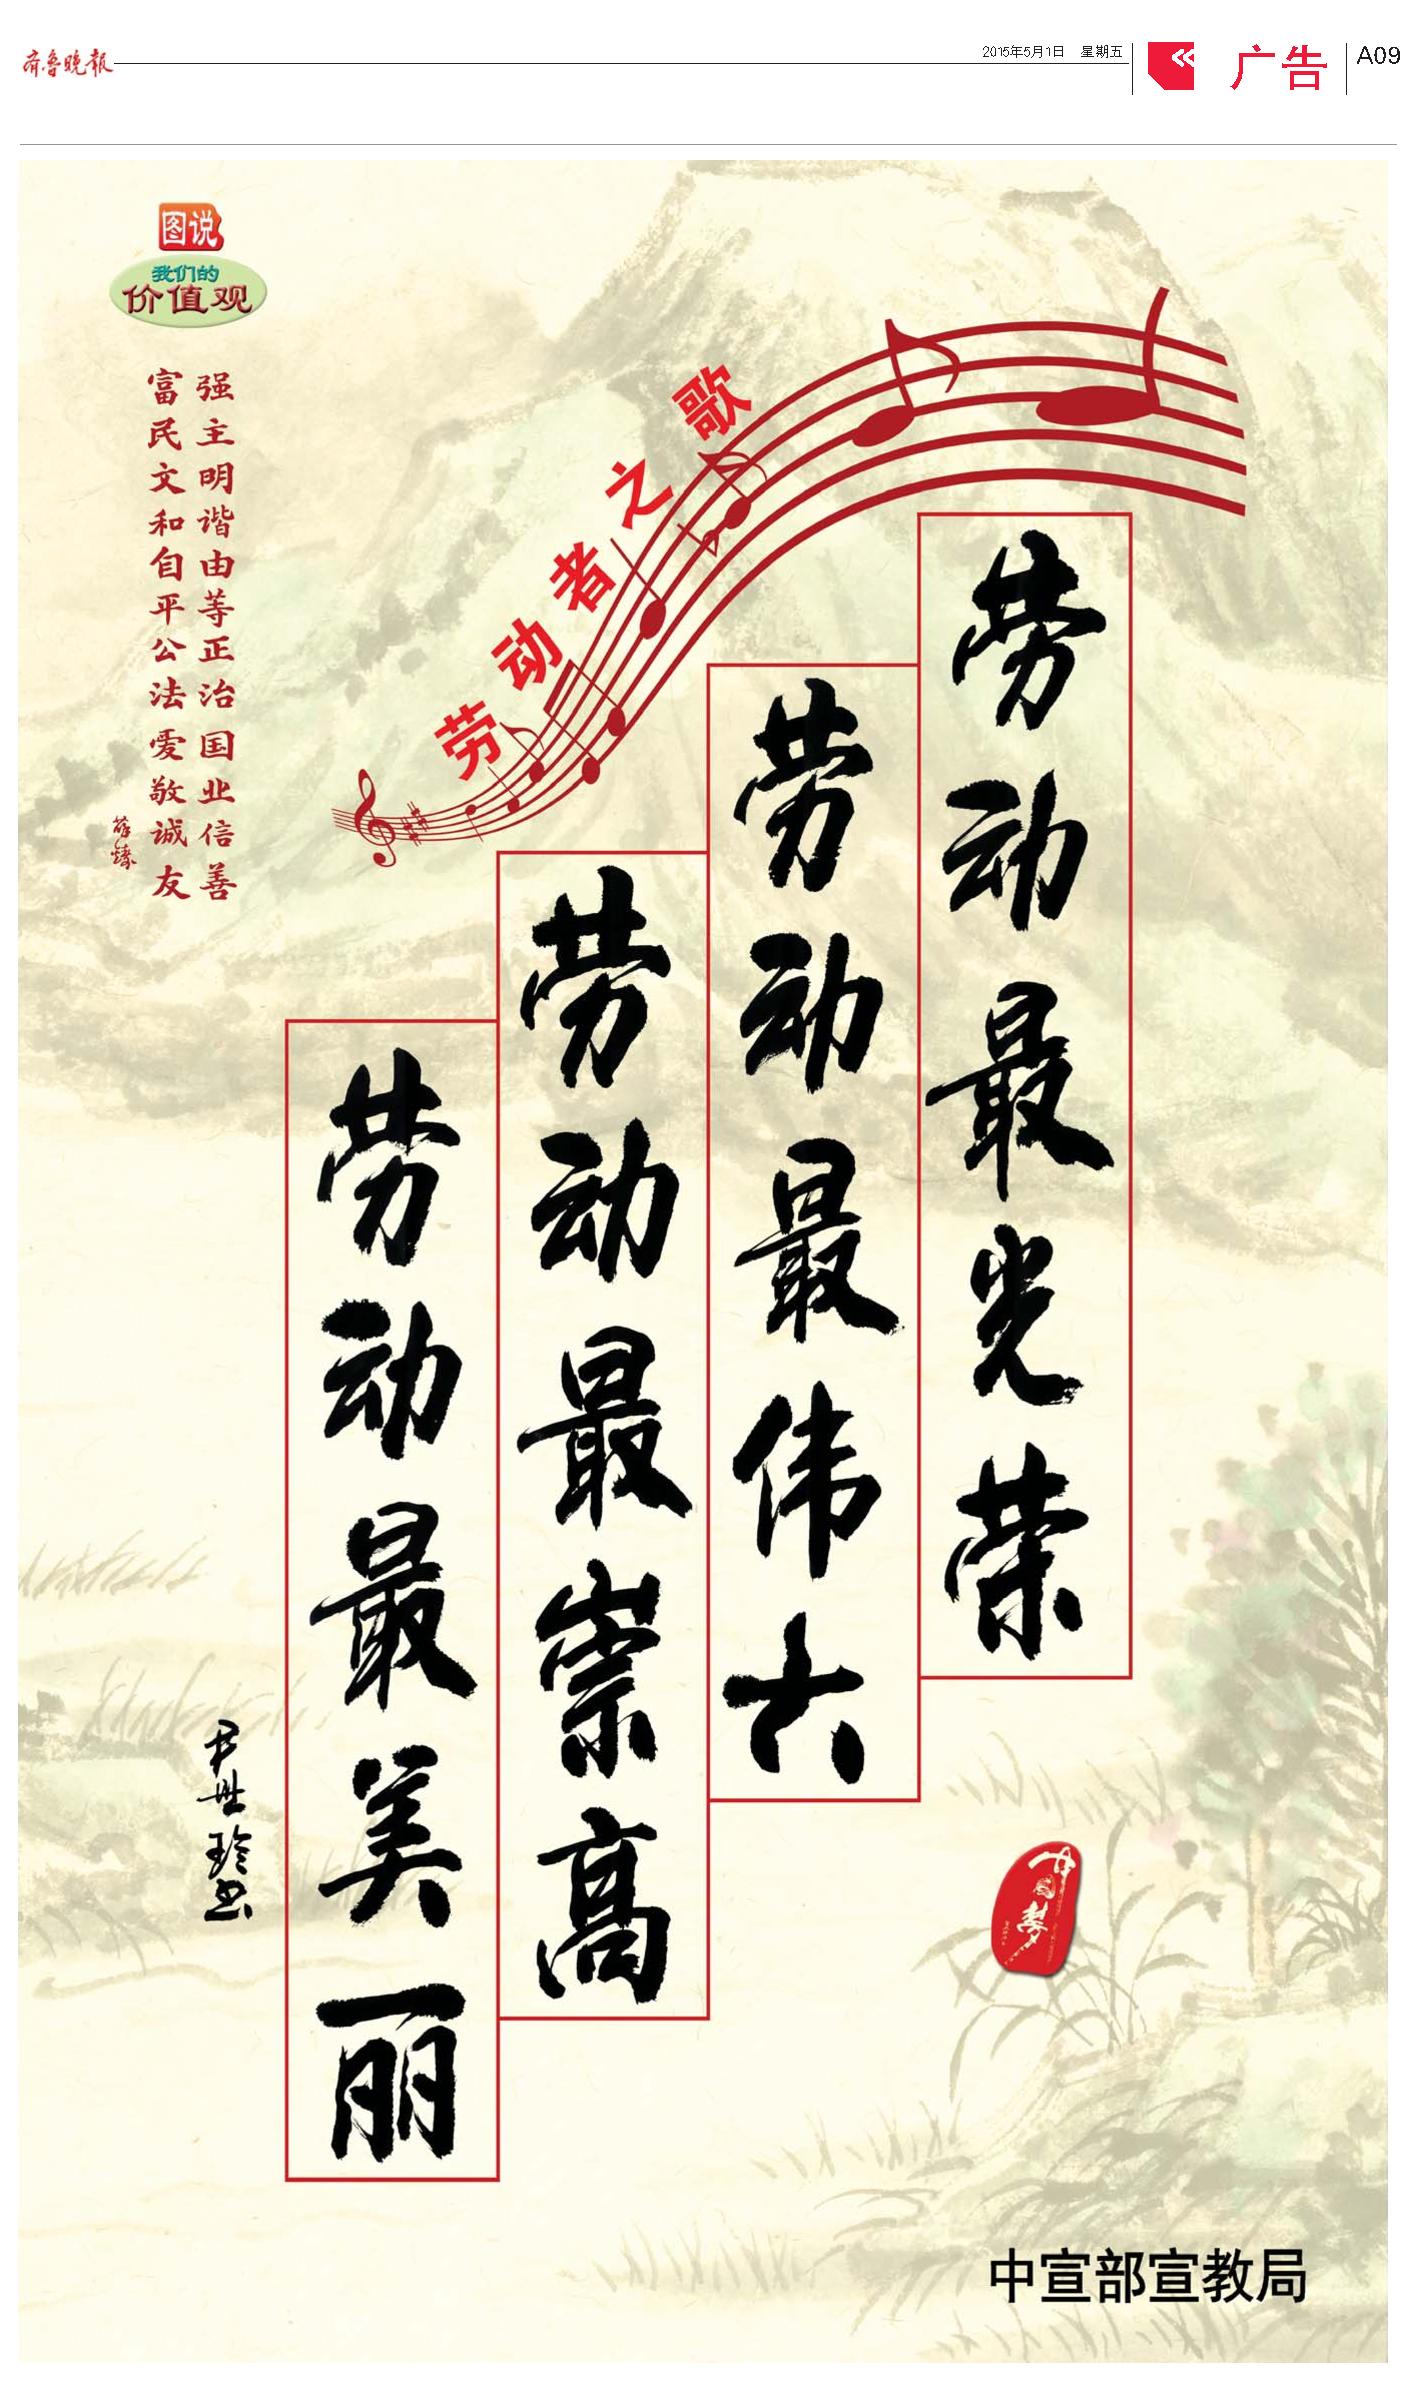 齐鲁晚报
2015年5月1日 星期五
广告
A09
图说
我们的
价值观
富强
民主
文明
和谐
自由
平等
公正
法治
爱国
敬业
诚信
友善
劳动者之歌
劳动最光荣
劳动最伟大
劳动最崇高
劳动最美丽
尹世玲书
中国梦
中宣部宣教局